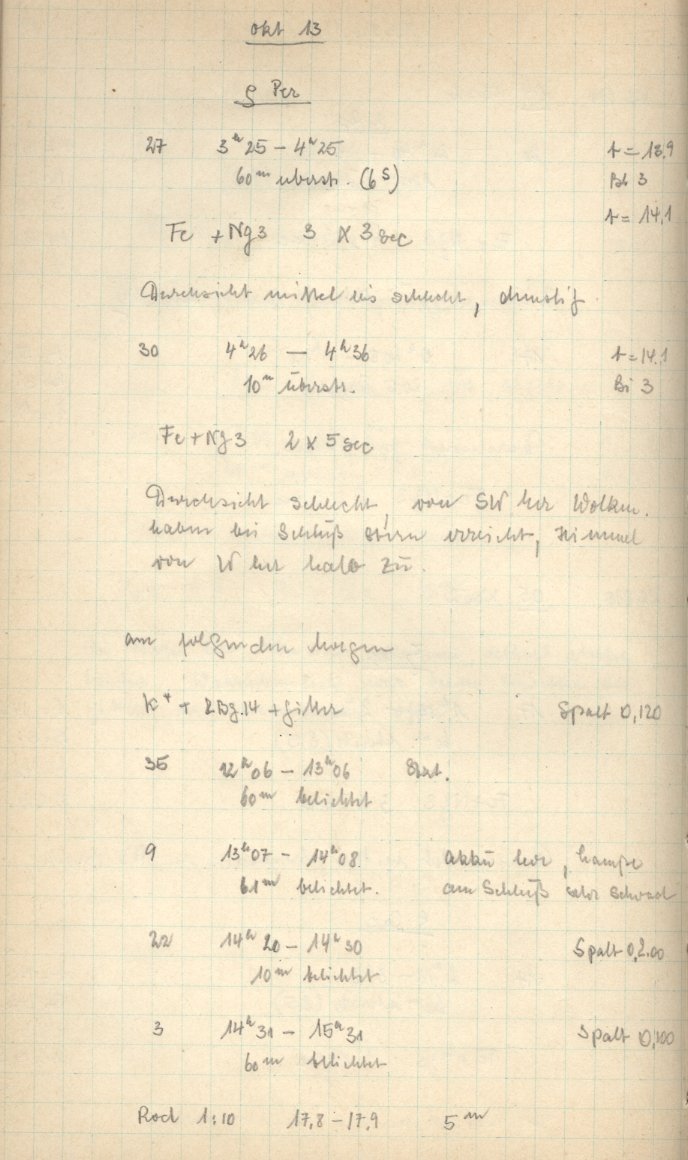 Okt 13
ρ Per
27 3ʰ25 – 4ʰ25 t = 13,9
60ᵐ überstr. (6ˢ) Bi 3
t = 14,1
Fe + Ng3 3 x 3 sec
Durchsicht mittel bis schlecht, dunstig
30 4ʰ26 – 4ʰ36 t = 14,1
10ᵐ überstr. Bi 3
Fe + Ng3 2 x 5 sec
Durchsicht schlecht, von SW her Wolken.
haben bei Schluß Stern erreicht, Himmel
von W her halb zu.
am folgenden Morgen
K + 2Bg.14 + Gitter Spalt 0,120
35 12ʰ06 – 13ʰ06
60ᵐ belichtet
9 13ʰ07 – 14ʰ08 Akku leer, Lampe
61ᵐ belichtet. am Schluß sehr schwach
22 14ʰ20 – 14ʰ30 Spalt 0,200
10ᵐ belichtet
3 14ʰ31 – 15ʰ31 Spalt 0,100
60ᵐ belichtet
1:10 17,8 – 17,9 5ᵐ